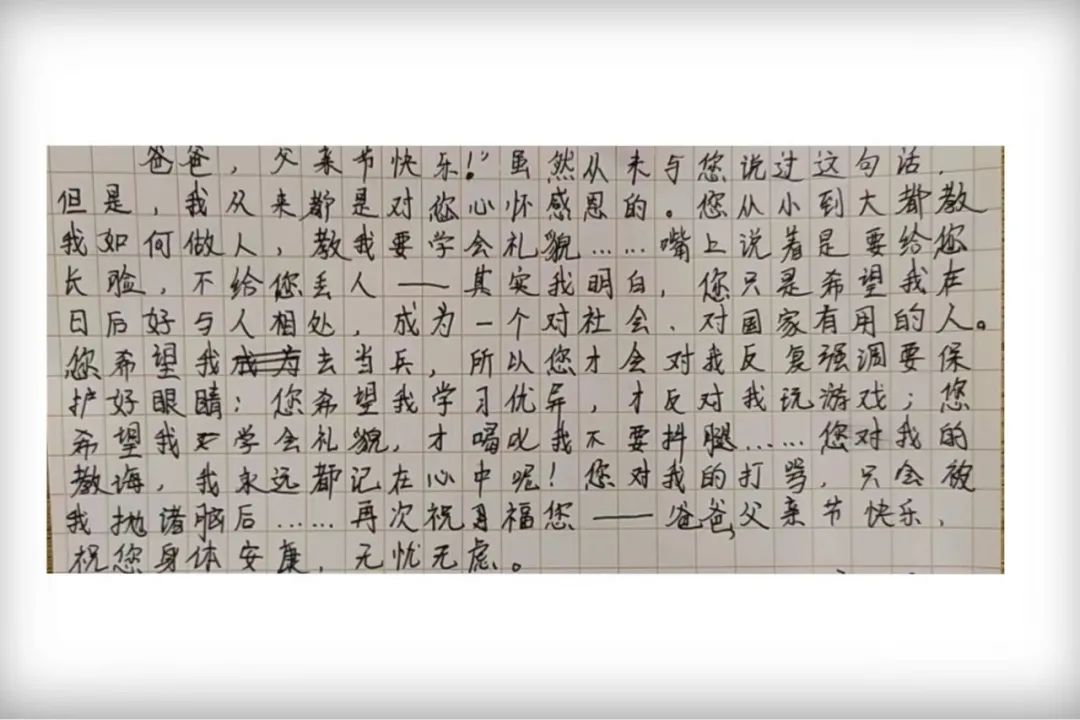 爸爸，父亲节快乐！”虽然从未与您说过这句话，
但是，我从来都是对您心怀感恩的。您从小到大都教
我如何做人，教我要学会礼貌……嘴上说着是要给您
长脸，不给您丢人——其实我明白，您只是希望我在
日后好与人相处，成为一个对社会、对国家有用的人。
您希望我去当兵，所以您才会对我反复强调要保
护好眼睛；您希望我学习优异，才反对我玩游戏；您
希望我学会礼貌，才喝叱我不要抖腿……您对我的
教诲，我永远都记在心中呢！您对我的打骂，只会被
我抛诸脑后……再次祝福您——爸爸，父亲节快乐，
祝您身体安康，无忧无虑。